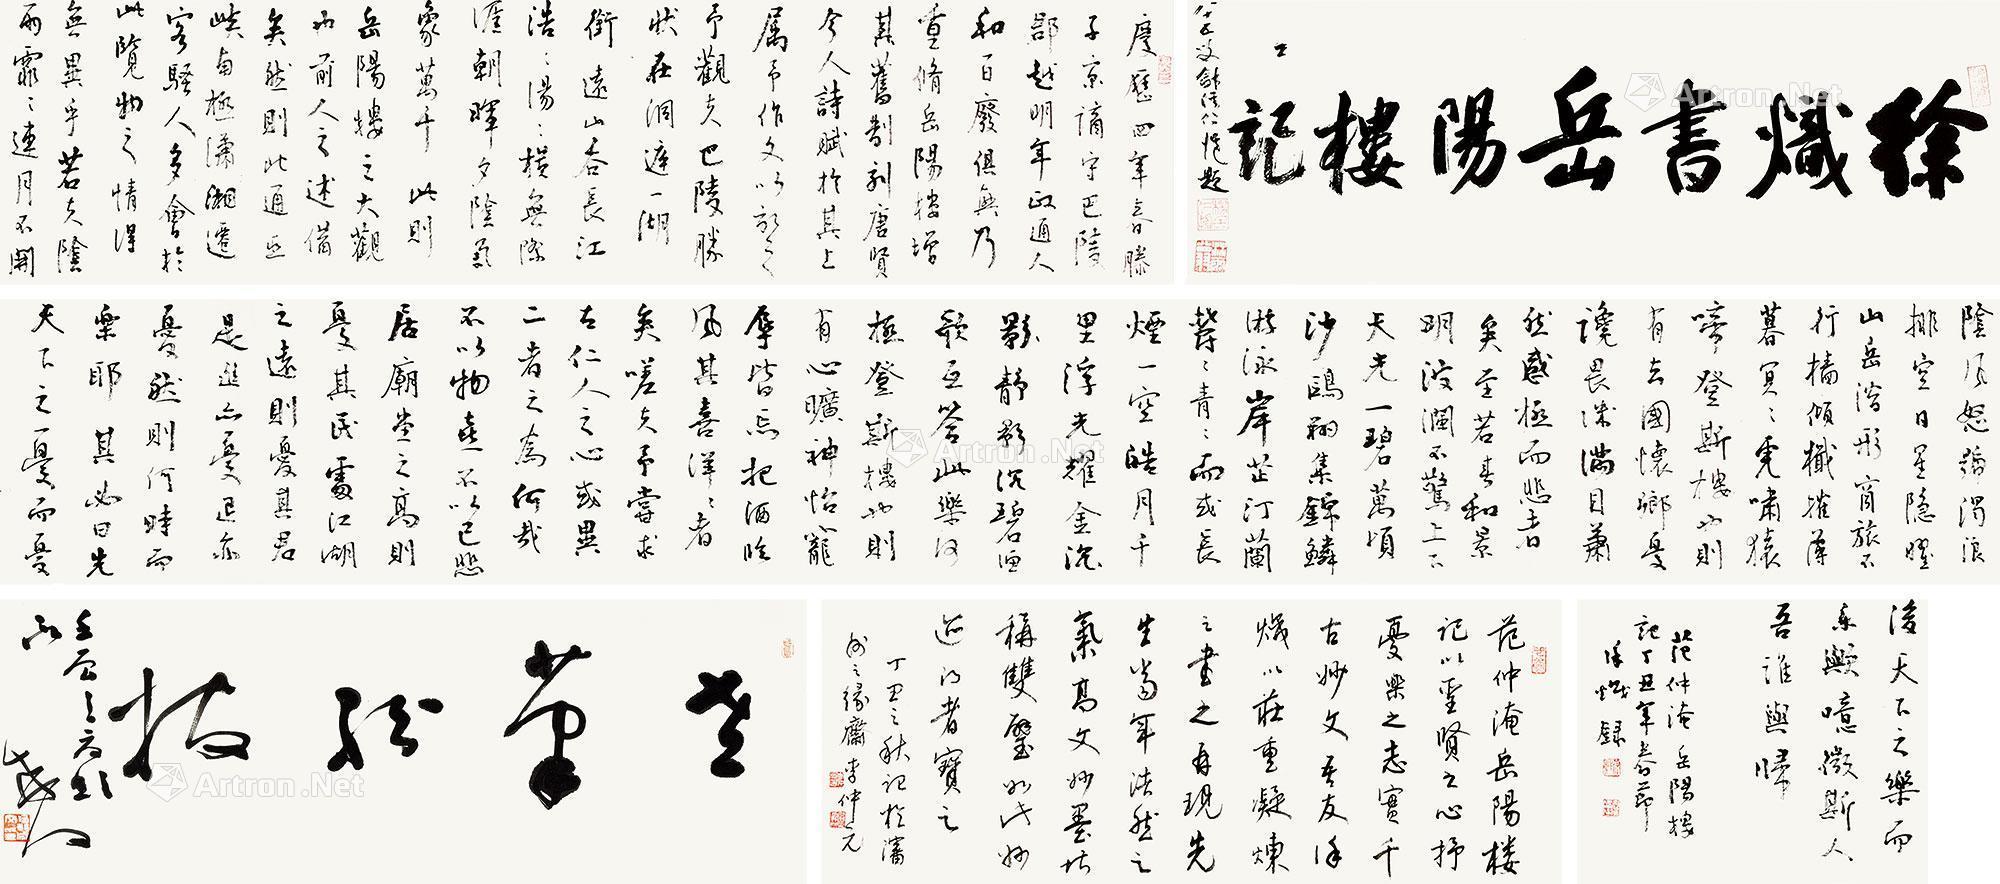 徐熾書岳陽樓記
慶歷四年春滕
子京謫守巴陵
郡越明年政通人
和百廢俱興乃
重脩岳陽樓增
其舊制刻唐賢
今人詩賦於其上
屬予作文以記之
予觀夫巴陵勝
狀在洞庭一湖
銜遠山吞長江
浩〻湯〻橫無際
涯朝暉夕陰氣
象萬千此則
岳陽樓之大觀
也前人之述備
矣然則北通巫
峽南極瀟湘遷
客騷人多會於
此覽物之情得
無異乎若夫陰
雨霏〻連月不開
陰風怒號濁浪
排空日星隱曜
山岳潛形商旅不
行檣傾檝摧薄
暮冥〻虎嘯猿
啼登斯樓也則
有去國懷鄉憂
讒畏譏滿目蕭
然感極而悲者
矣至若春和景
明波瀾不驚上下
天光一碧萬頃
沙鷗翔集錦鱗
游泳岸芷汀蘭
鬱〻青〻而或長
煙一空皓月千
里浮光耀金沉
影靜影沉碧漁
歌互答此樂何
極登斯樓也則
有心曠神怡寵
辱皆忘把酒臨
風其喜洋〻者
矣嗟夫予嘗求
古仁人之心或異
二者之為何哉
不以物喜不以己悲
居廟堂之高則
憂其民處江湖
之遠則憂其君
是進亦憂退亦
憂然則何時而
樂耶其必曰先
天下之憂而憂
後天下之樂而
樂歟噫微斯人
吾誰與歸
范仲淹岳陽樓
記丁丑年春節
徐熾錄
范仲淹岳陽樓
記以聖賢之心抒
憂樂之志實千
古妙文吾友徐
熾以莊重凝煉
之書之再現先
生當年浩然之
氣高文妙墨堪
稱雙璧如此妙
迹得者寶之
丁丑之秋記於瀋
州之緣齋李仲元
老筆紛披
Artron.Net
Artron.Net
Artron.Net
Artron.Net
Artron.Net